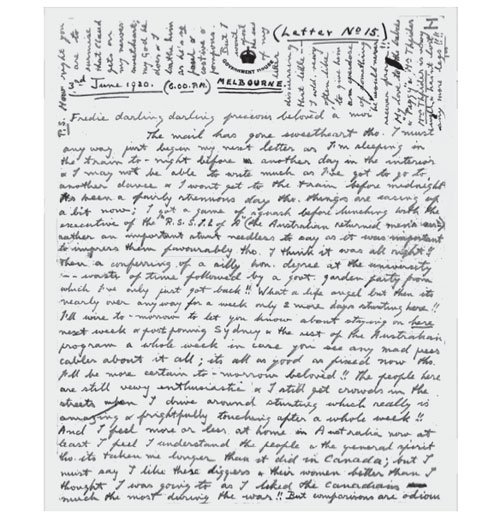 (Letter No 15.)
GOVERNMENT HOUSE
MELBOURNE.
3rd June 1920. (6.00. P.M.)
P.S. How right you
are to
surmise
that
gets on
my nerves
sweetheart;
my God he
does & I
loathe him
as he's
Fredie darling darling precious beloved à moi
The mail has gone sweetheart tho. I must
any way just begin my next letter as I'm sleeping in
the train to-night before another day in the interior
& I may not be able to write much as I've got to go to
another dance & I won't get to the train before midnight
Its been a fairly strenuous day tho. things are easing up
a bit now; I got a game of squash before lunching with the
executive of the "R.S.S.I.L of A" (the Australian returned men's
rather an important stunt needless to say as it was important
to impress them favourably tho. I think it was all right!!
Then a conferring of a silly hon. degree at the university
waste of time followed by a govt. garden party from
which I've only just got back!! What a life angel but then its
nearly over anyway for a week only 2 more days stunting here!!
I'll wire to-morrow to let you know about staying on here
next week & postponing Sydney & the rest of the Australian
program a whole week in case you see any mad press
cables about it all; its all as good as fixed now tho.
I'll be more certain to-morrow beloved!! The people here
are still very enthusiastic & I still get crowds in the
streets when I drive around stunting which really is
amazing & frightfully touching after a whole week!!
And I feel more or less at home in Australia now at
least I feel I understand the people & the general spirit
tho. its taken me longer than it did in Canada; but I
must say I like these diggers & their women better than I
thought I was going to as I liked the Canadians
much the most during the war!! But comparisons are odious